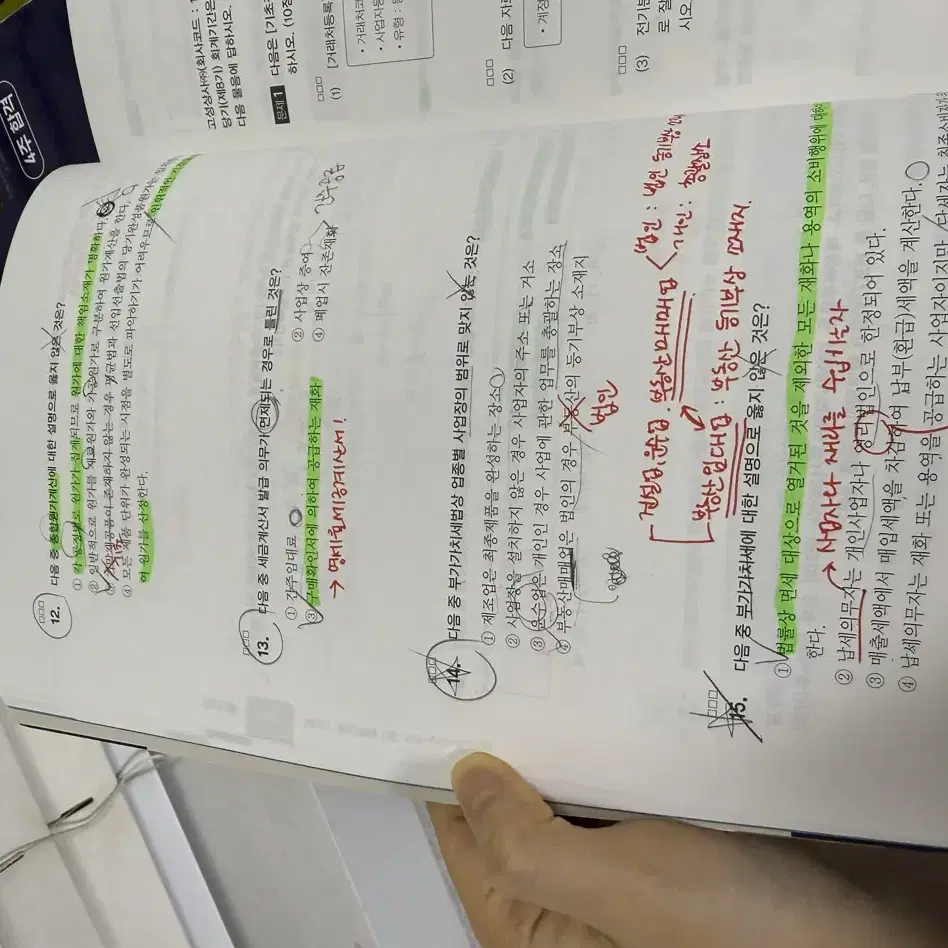 4주 합격
12. 다음 중 종합원가계산에 대한 설명으로 옳지 않은 것은?
① 각 공정별로 원가가 집계되므로 원가에 대한 책임소재가 명확하다.
② 일반적으로 원가를 재료원가와 가공원가로 구분하여 원가계산을 한다.
③ 기말재공품이 존재하지 않는 경우 평균법과 선입선출법의 당기완성품원가는
④ 모든 제품 단위가 완성되는 시점을 별도로 파악하기가 어려우므로 인위적인
여 원가를 산정한다.
13. 다음 중 세금계산서 발급 의무가 면제되는 경우로 틀린 것은?
① 간주임대료
② 사업상 증여
③ 구매확인서에 의하여 공급하는 재화
④ 폐업시 잔존재화
간주공급
→ 영세율세금계산서!
14. 다음 중 부가가치세법상 업종별 사업장의 범위로 맞지 않는 것은?
① 제조업은 최종제품을 완성하는 장소
② 사업장을 설치하지 않은 경우 사업자의 주소 또는 거소
③ 운수업은 개인인 경우 사업에 관한 업무를 총괄하는 장소
④ 부동산매매업은 법인의 경우 부동산의 등기부상 소재지
법인
건설업, 운수업, 부동산매매업
법인 : 법인 등기부상
개인 : 업무총괄장소
부동산임대업 : 부동산 등기부상 소재지
15. 다음 중 부가가치세에 대한 설명으로 옳지 않은 것은?
① 법률상 면세 대상으로 열거된 것을 제외한 모든 재화나 용역의 소비행위에 대하여
한다.
→ 사업자나 재화를 수입하는자
② 납세의무자는 개인사업자나 영리법인으로 한정되어 있다.
③ 매출세액에서 매입세액을 차감하여 납부(환급)세액을 계산한다.
④ 납세의무자는 재화 또는 용역을 공급하는 사업자이지만,
고성상사㈜(회사코드 :
당기(제8기) 회계기간은
다음 물음에 답하시오.
문제 1 다음은 [기초
하시오. (10점
(1) [거래처등록
• 거래처코
• 사업자등
• 유형 :
(2) 다음 자료
• 계정
(3) 전기분
로 잘
시오.